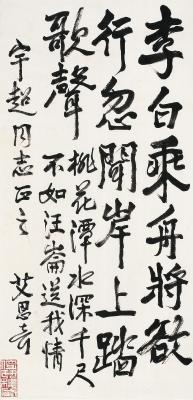 李白乘舟將欲
行忽聞岸上踏
歌聲
桃花潭水深千尺
不如汪崙送我情
宇超同志正之
艾思奇